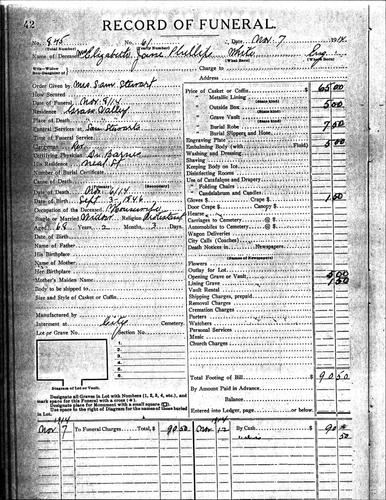 42 RECORD OF FUNERAL.
No. 845 No. 61 Date Nov. 7 1914
(Total Number) (Yearly Number)
Name of Deceased Mrs Elizabeth Jane Phillips White Eng
(What Race) (Where Born)
Charge to
Address
Order Given by Mrs Sam Stewart
How Secured
Date of Funeral Nov. 8/14
Residence Grass Valley
Place of Death
Funeral Services at Sam Stewarts
Time of Funeral Service
Clergyman
Certifying Physician Dr. Barnes
His Residence
Number of Burial Certificate
Cause of Death
(Primary) (Secondary)
Date of Death Nov 6/14
Date of Birth Sept. 3, 1846
Occupation of the Deceased Housewife
Single or Married Widow Religion
Aged 68 Years 2 Months 3 Days
Date of Birth
Name of Father
His Birthplace
Name of Mother
Her Birthplace
Mother's Maiden Name
Body to be shipped to
Size and Style of Casket or Coffin
Manufactured by
Interment at City Cemetery
Lot or Grave No. Section No.
1.
2.
3.
4.
5.
6.
Diagram of Lot or Vault.
Designate all Graves in Lot with Numbers (1, 2, 3, 4, etc.), and
mark space for this Funeral with a cross
Designate place for Monument with a small square
Use space to the right of Diagram for the names of those buried
in Lot.
Price of Casket or Coffin $ 65 00
" Metallic Lining
(State Kind)
" Outside Box 5 00
(State Kind)
" Grave Vault
(State Kind)
" Burial Robe 7 50
(State Kind)
" Burial Slippers and Hose
Engraving Plate
Embalming Body (with Fluid) 5 00
Washing and Dressing
Shaving
Keeping Body on Ice
Disinfecting Rooms
Use of Catafalque and Drapery
" Folding Chairs
" Candelabrum and Candles
Gloves $ Crape $ 1 50
Door Crape $ Canopy $
Hearse
Carriages to Cemetery @ $
Automobiles to Cemetery @ $
Wagon Deliveries
City Calls (Coaches)
Death Notices in Newspapers
(Names of Newspapers)
Flowers
Outlay for Lot
Opening Grave or Vault 5 00
Lining Grave 1 50
Vault Rental
Shipping Charges, prepaid
Removal Charges
Cremation Charges
Porters
Watchers
Personal Services
Music
Church Charges
Total Footing of Bill $ 90 50
By Amount Paid in Advance
Balance
Entered into Ledger, page or below.
1914 1914
Nov. 7 To Funeral Charges, Total $ 90 50 Nov. 12 By Cash $ 90
50